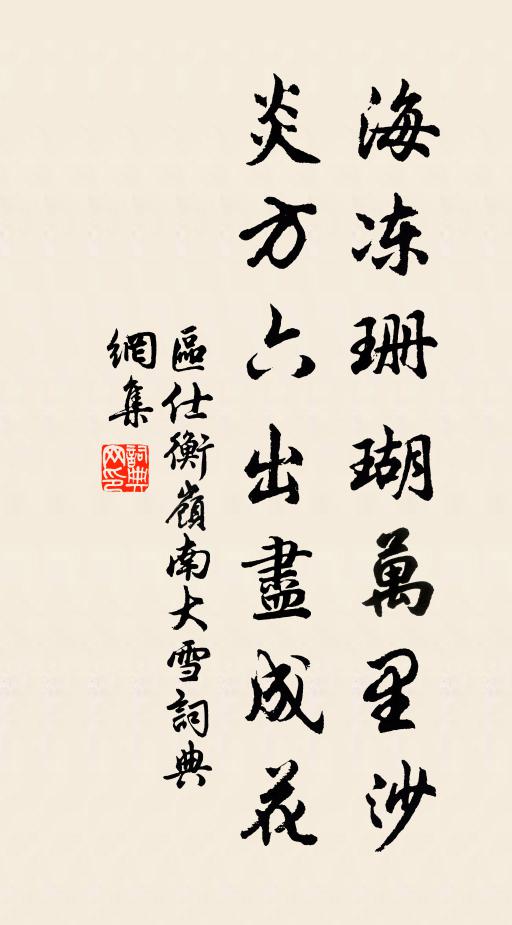 海冻珊瑚萬里沙
炎方六出盡成花
區仕衡嶺南大雪詞典
網集
詞典網印